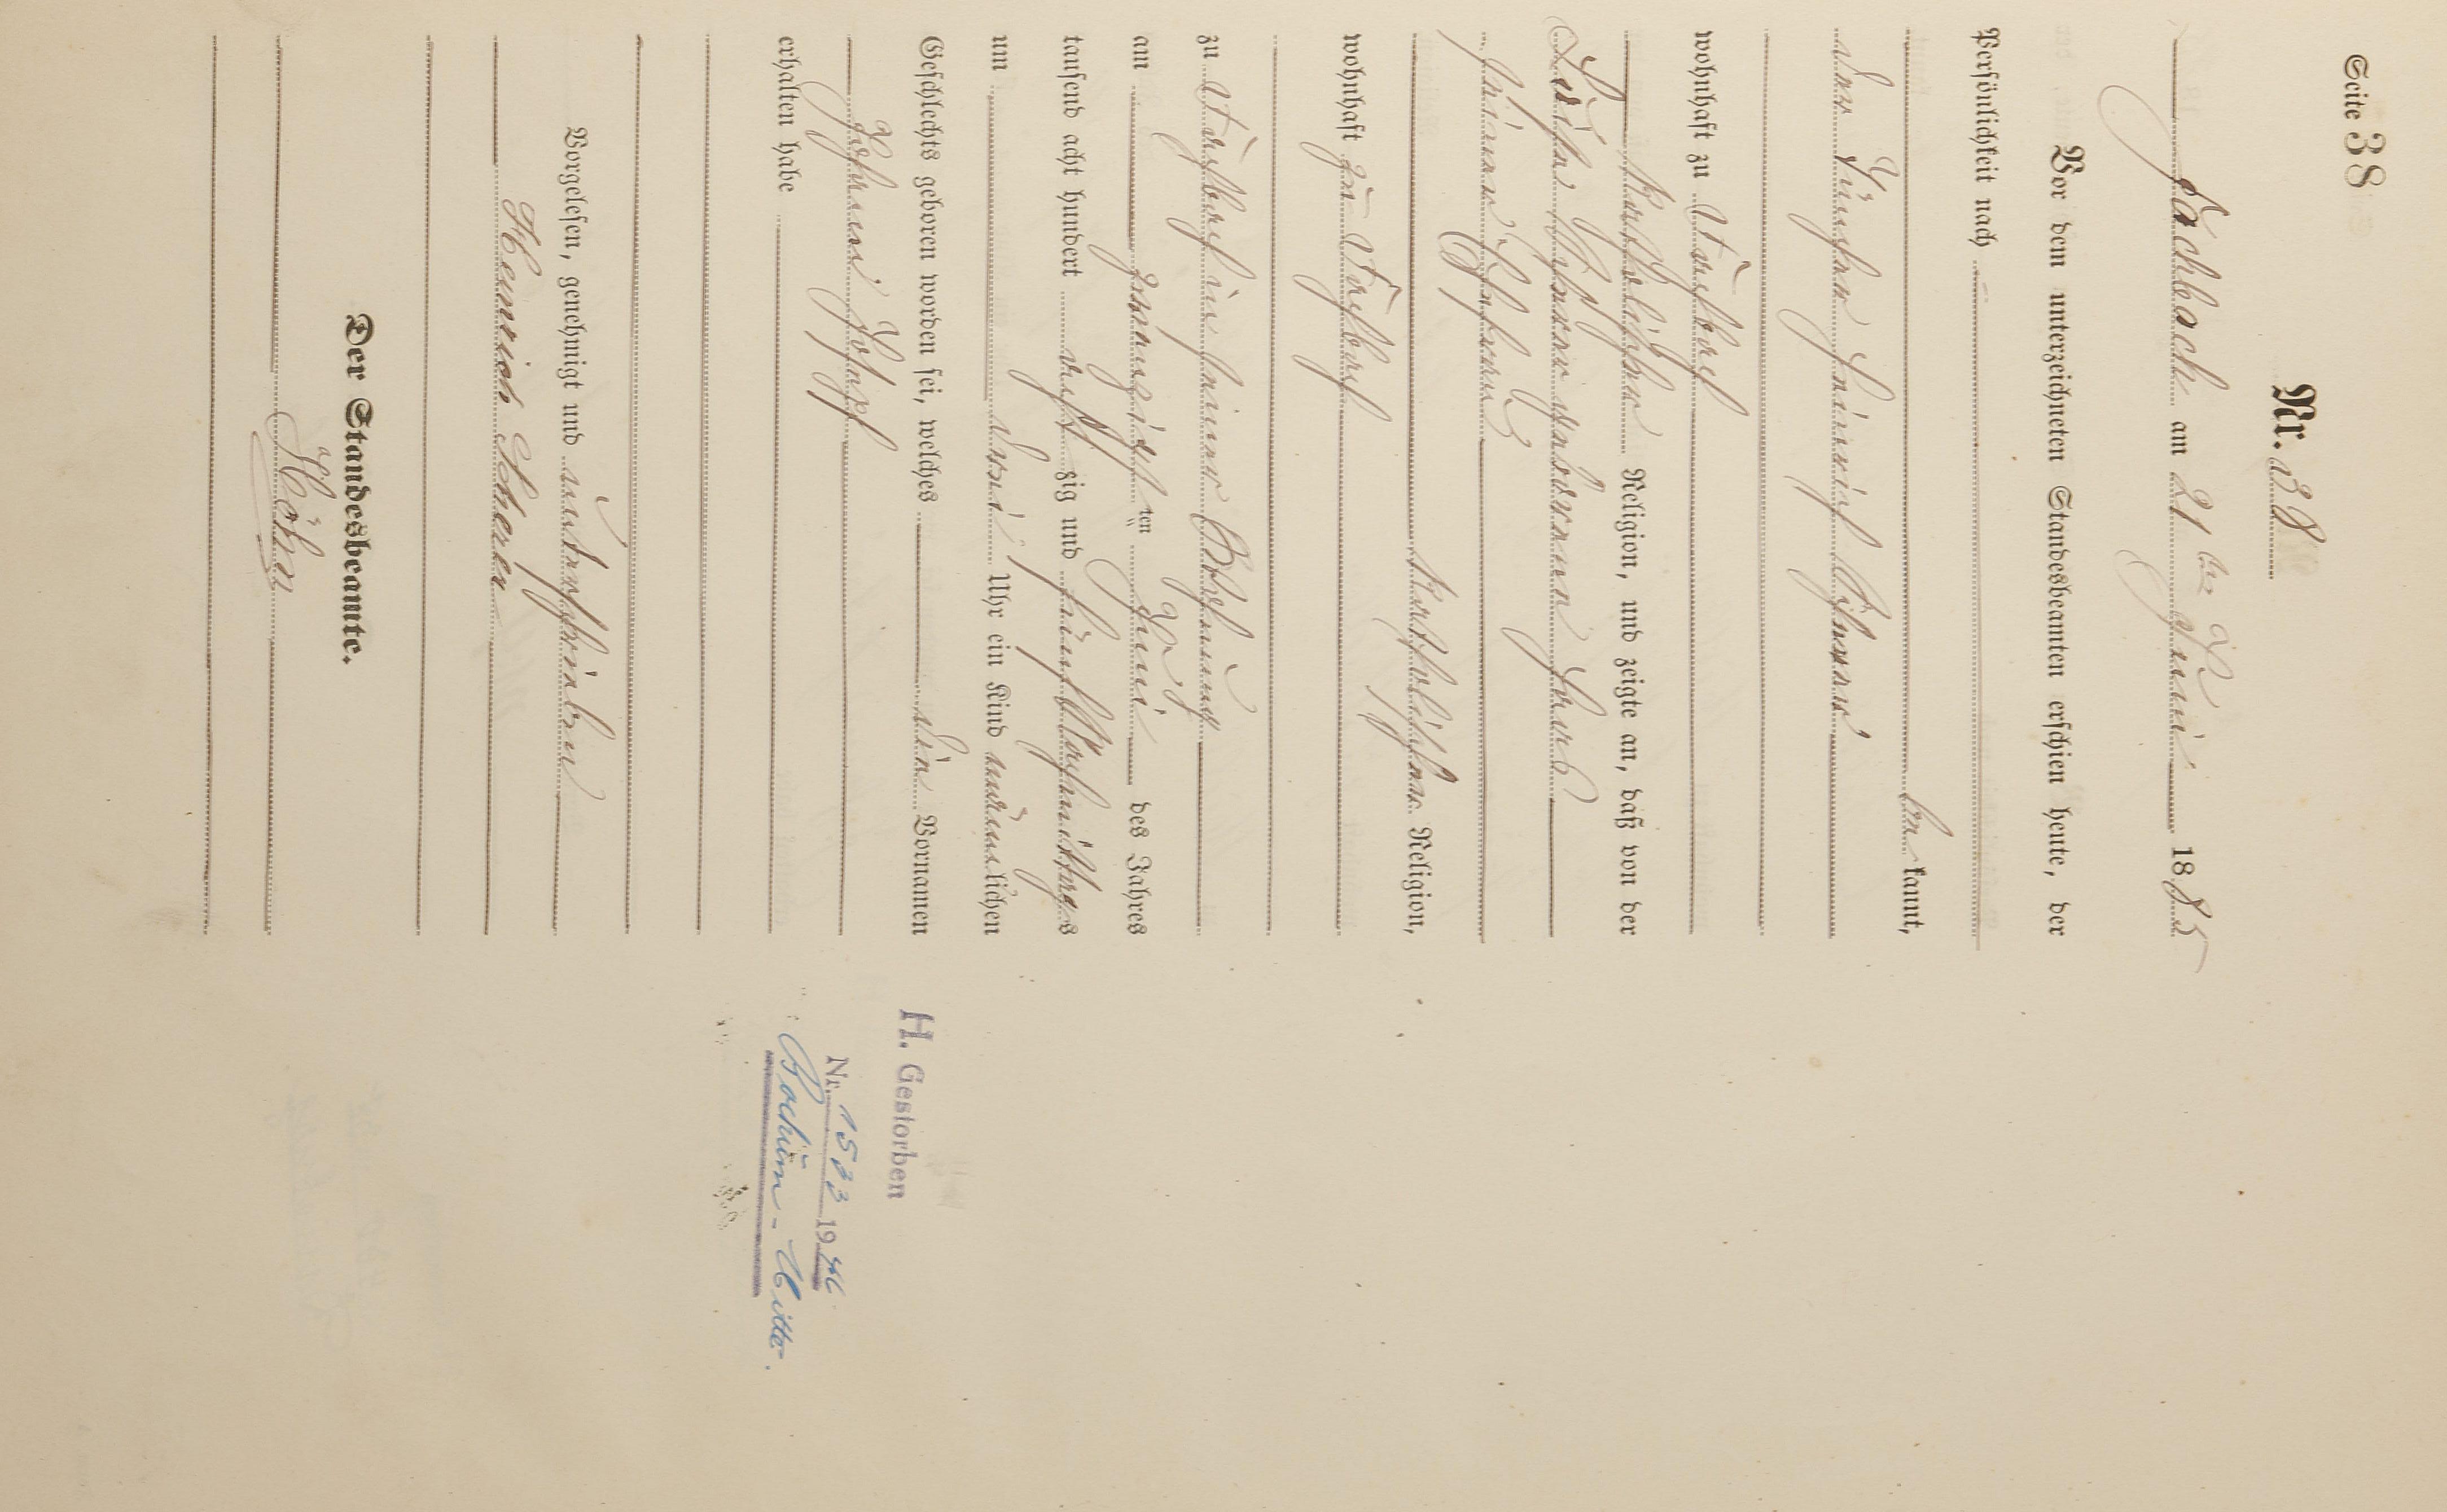 Seite 38
Nr. 38
Fachbach am 21ten Juni 1885
Vor dem unterzeichneten Standesbeamten erschien heute, der
Persönlichkeit nach
bekannt,
der Tüncher Heinrich Scherer
wohnhaft zu
katholischer Religion, und zeigte an, daß von der
Scherer geborenen
seiner Ehefrau
katholischer Religion,
wohnhaft zu
zu in seiner Wohnung
am zwanzigsten Juni des Jahres
tausend acht hundert acht zig und fünf Nachmittags
um drei Uhr ein Kind männlichen
Geschlechts geboren worden sei, welches die Vornamen
Johann Josef
erhalten habe
Vorgelesen, genehmigt und unterschrieben
Heinrich Scherer
Der Standesbeamte.
Höhn
H. Gestorben
Nr. 1533 1946
Bochum-Mitte.